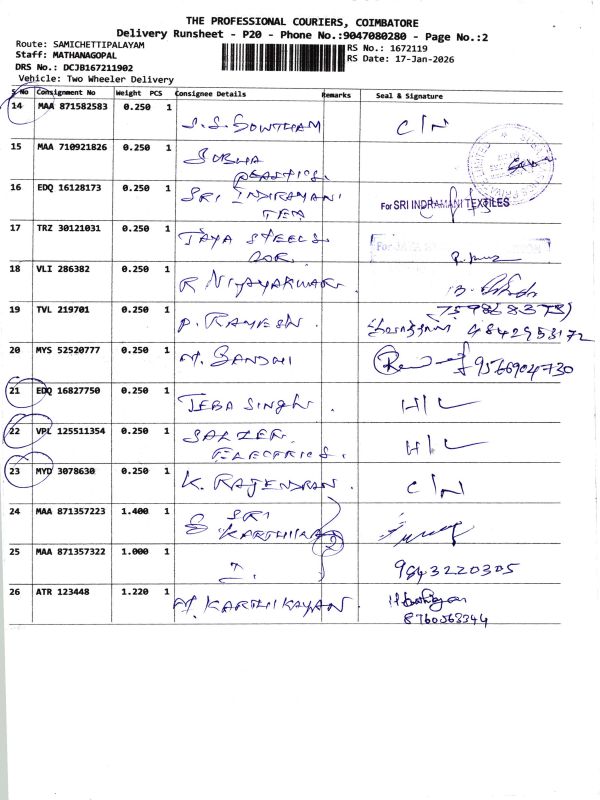 THE PROFESSIONAL COURIERS, COIMBATORE
Delivery Runsheet - P20 - Phone No.:9047080280 - Page No.:2
Route: SAMICHETTIPALAYAM
Staff: MATHANAGOPAL
DRS No.: DCJB167211902
Vehicle: Two Wheeler Delivery
RS No.: 1672119
RS Date: 17-Jan-2026
S No Consignment No Weight PCS Consignee Details Remarks Seal & Signature
14 MAA 871582583 0.250 1 S.S. GOWTHAM C/N
15 MAA 710921826 0.250 1 SUBHA PLASTICS.
16 EDQ 16128173 0.250 1 SRI INDIRAMANI TEX For SRI INDRAMANI TEXTILES
17 TRZ 30121031 0.250 1 JAYA STEELS
18 VLI 286382 0.250 1 R
19 TVL 219701 0.250 1 P. RAMESH. 9842953172
20 MYS 52520777 0.250 1 M. GANDHI 9566904730
21 EDQ 16827750 0.250 1 JEBA SINGH. H/L
22 VPL 125511354 0.250 1 SALZER ELECTRICS. H/L
23 MYD 3078630 0.250 1 K. RAJENDRAN. C/N
24 MAA 871357223 1.400 1 SRI KARTHIKA 2
25 MAA 871357322 1.000 1 9843220305
26 ATR 123448 1.220 1 M. KARTHIKAYAN 8760568344